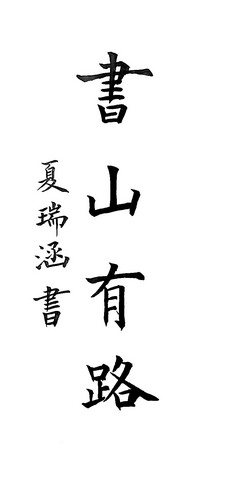 書山有路
夏瑞涵書